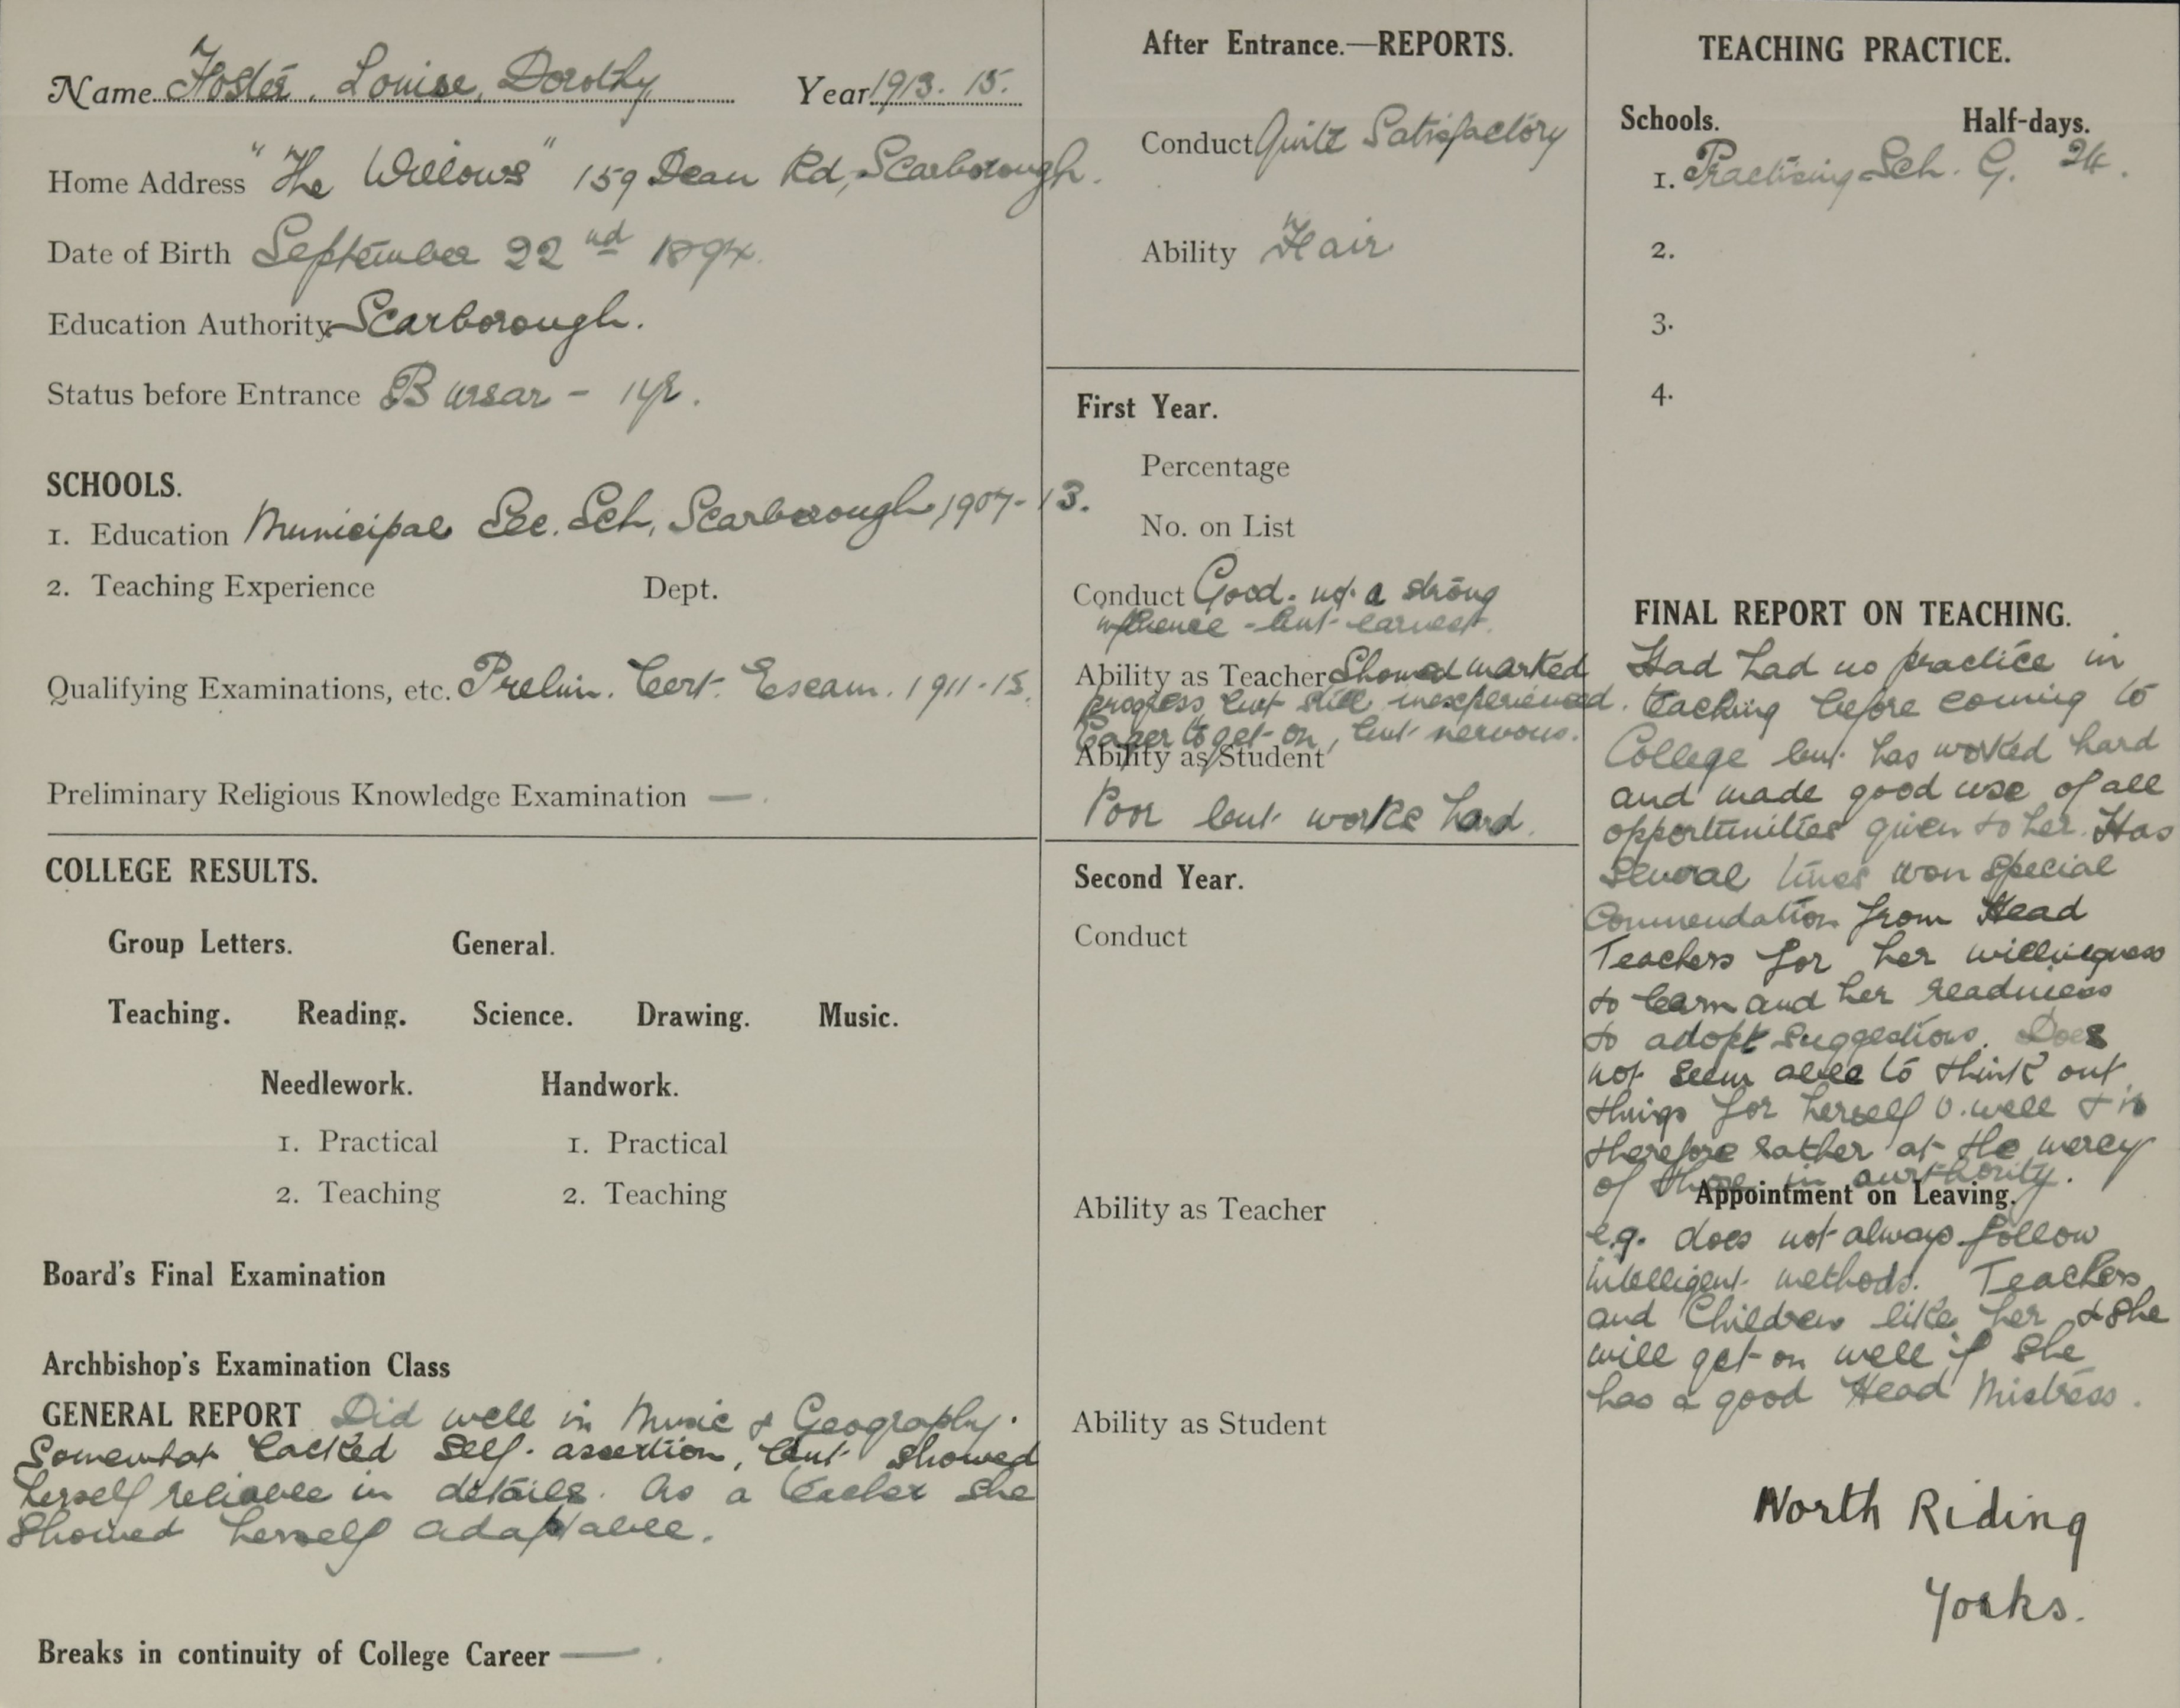 Name Foster, Louise, Dorothy Year 1913. 15.
Home Address "The Willows" 159 Dean Rd, Scarborough.
Date of Birth September 22nd 1894.
Education Authority Scarborough.
Status before Entrance Bursar - 1 yr.
SCHOOLS.
1. Education Municipal Sec. Sch, Scarborough, 1907-13.
2. Teaching Experience Dept.
Qualifying Examinations, etc. Prelim. Cert. Exam. 1911-13.
Preliminary Religious Knowledge Examination — .
COLLEGE RESULTS.
Group Letters. General.
Teaching. Reading. Science. Drawing. Music.
Needlework. Handwork.
1. Practical 1. Practical
2. Teaching 2. Teaching
Board's Final Examination
Archbishop's Examination Class
GENERAL REPORT Did well in Music & Geography.
Somewhat lacked self-assertion, but showed
herself reliable in details. As a teacher she
showed herself adaptable.
Breaks in continuity of College Career — .
After Entrance.—REPORTS.
Conduct Quite Satisfactory
Ability Fair
First Year.
Percentage
No. on List
Conduct Good. not a strong
influence - but earnest.
Ability as Teacher Showed marked
progress but still inexperienced.
Eager to get on, but nervous.
Ability as Student
Poor but works hard.
Second Year.
Conduct
Ability as Teacher
Ability as Student
TEACHING PRACTICE.
Schools. Half-days.
1. Practising Sch. G. 24.
2.
3.
4.
FINAL REPORT ON TEACHING.
Had had no practice in
teaching before coming to
College but has worked hard
and made good use of all
opportunities given to her. Has
several times won special
Commendation from Head
Teachers for her willingness
to learn and her readiness
to adopt suggestions. Does
not seem able to think out
things for herself v. well & is
therefore rather at the mercy
of those in aurthority.
Appointment on Leaving.
e.g. does not always follow
intelligent methods. Teachers
and Children like her & she
will get on well if she
has a good Head Mistress.
North Riding
Yorks.